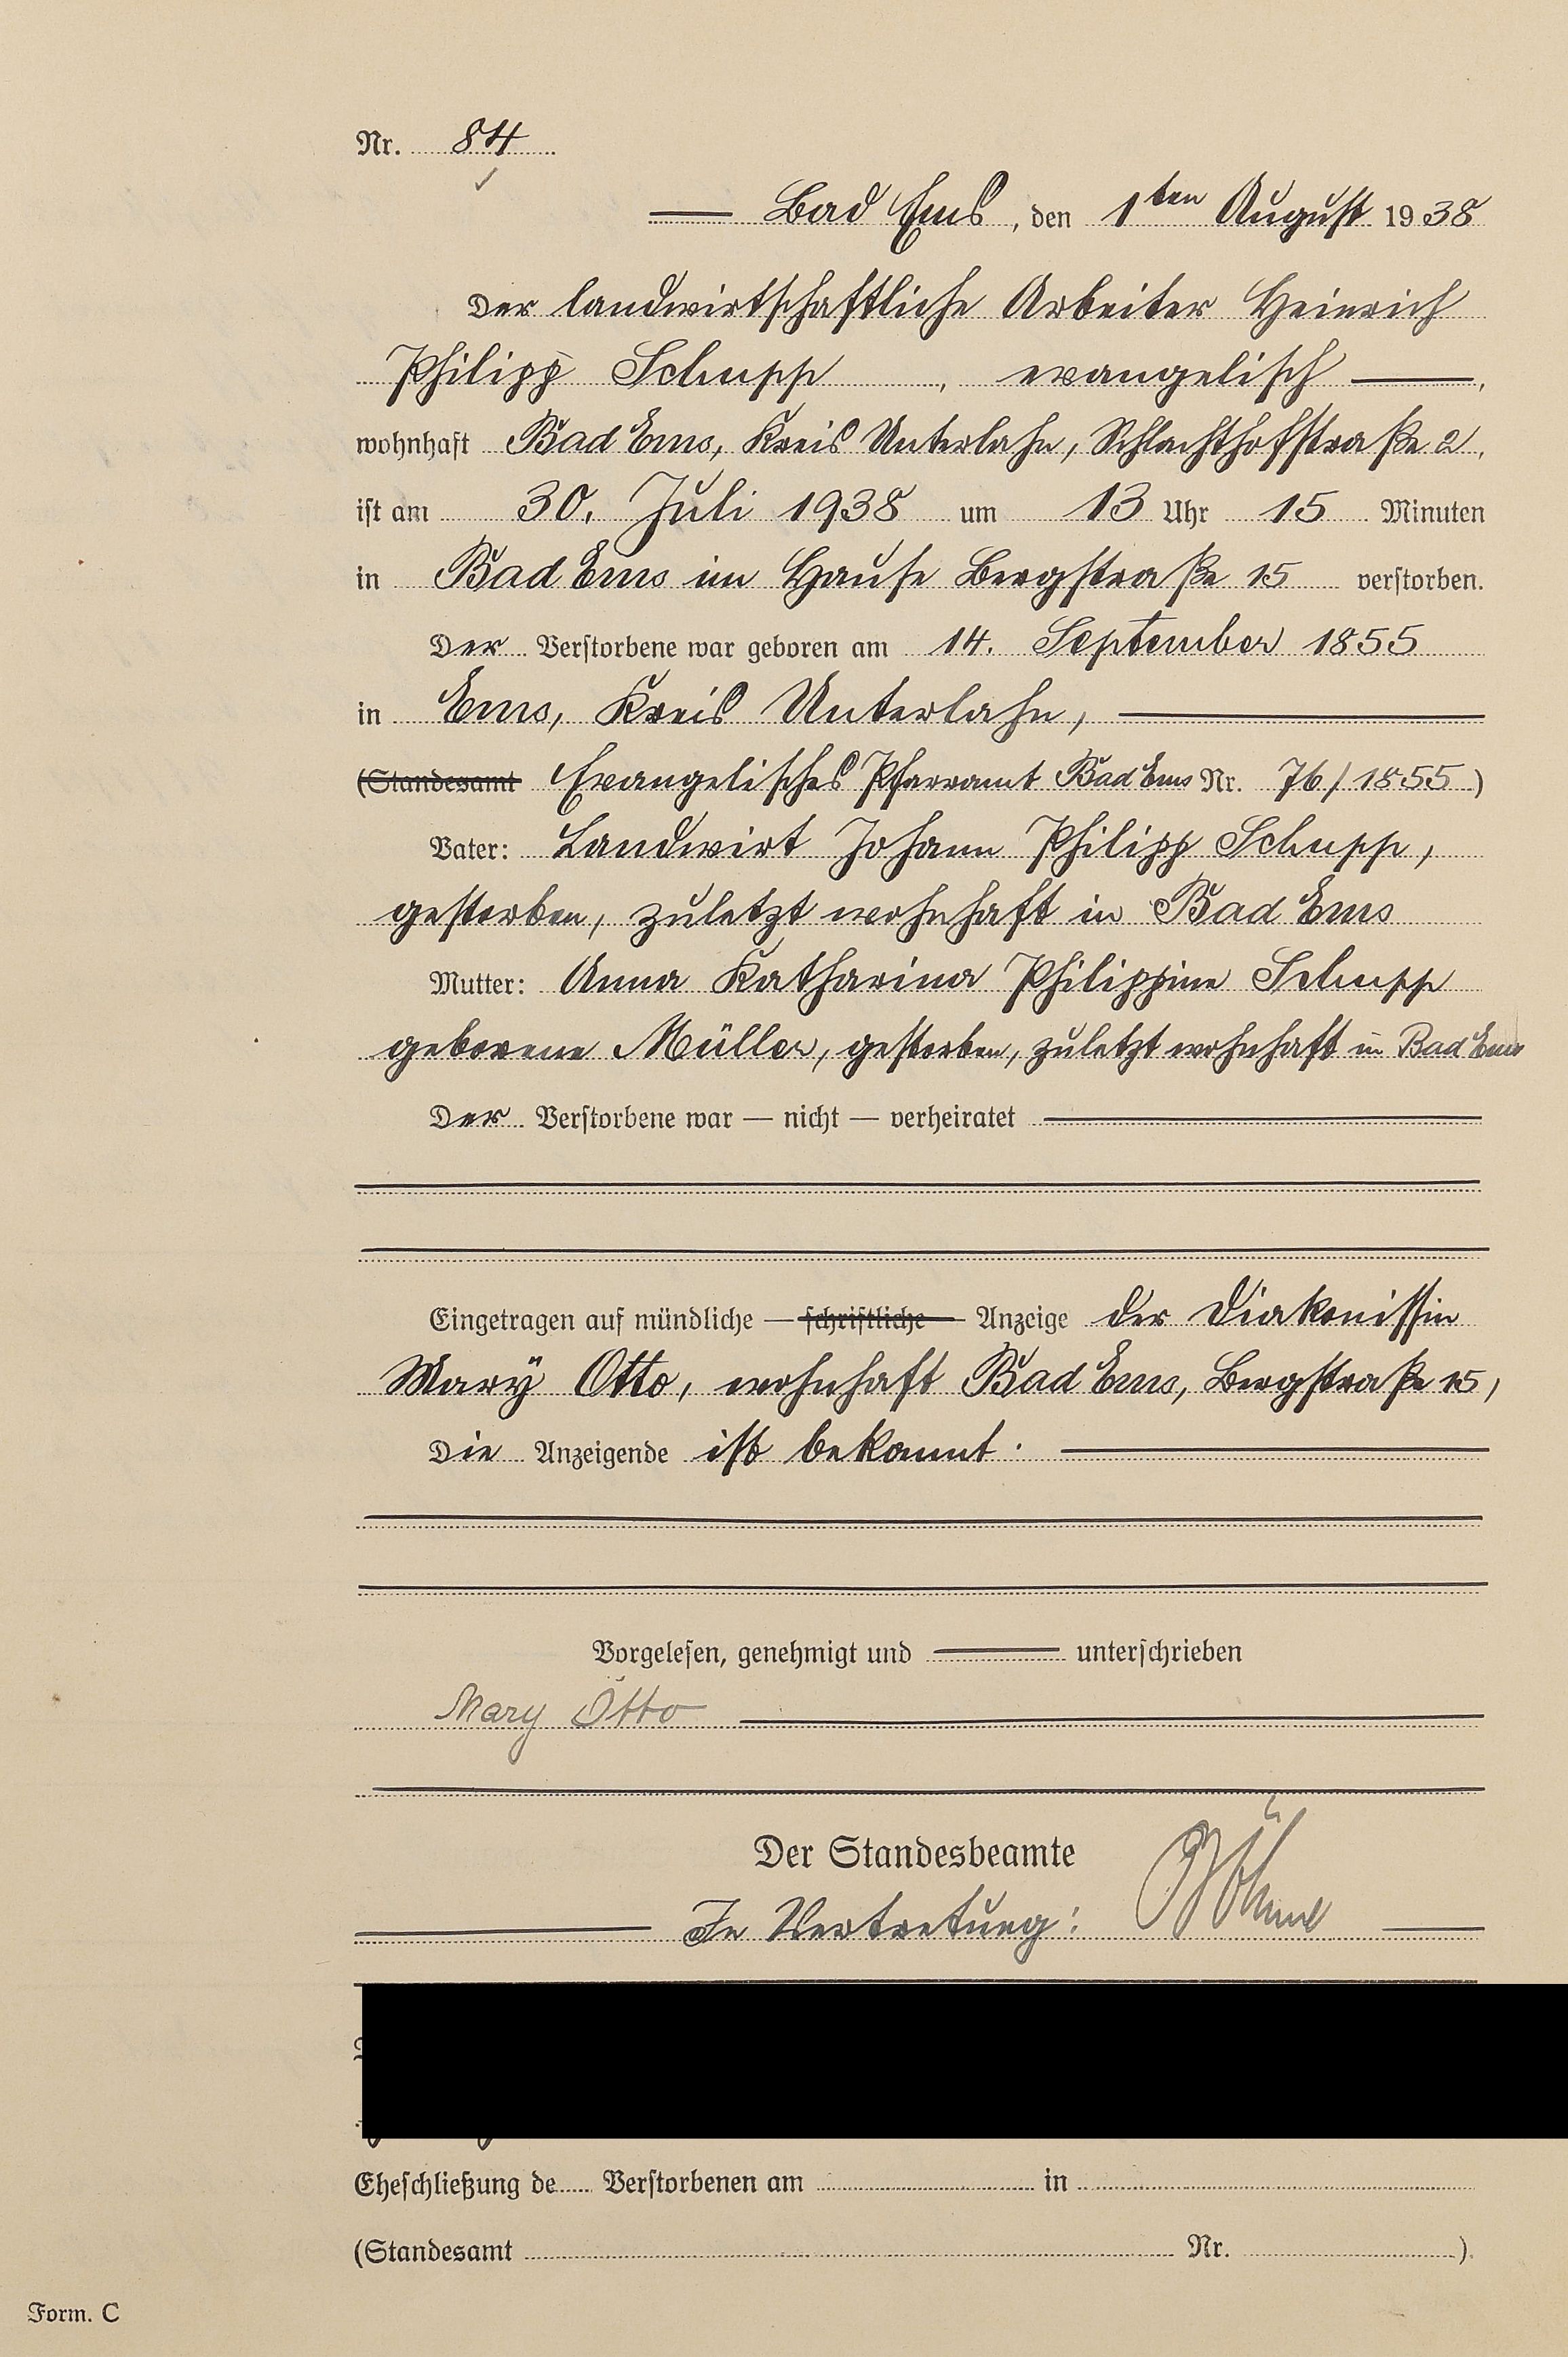 Nr. 84
Bad Ems, den 1ten August 1938
Der landwirtschaftliche Arbeiter Heinrich
Philipp Schupp, evangelisch,
wohnhaft Bad Ems, Kreis Unterlahn, Schlachthofstraße 2,
ist am 30. Juli 1938 um 13 Uhr 15 Minuten
in Bad Ems im Hause Bergstraße 15 verstorben.
Der Verstorbene war geboren am 14. September 1855
in Ems, Kreis Unterlahn,
(Standesamt Evangelisches Pfarramt Bad Ems Nr. 76/1855)
Vater: Landwirt Johann Philipp Schupp,
gestorben, zuletzt wohnhaft in Bad Ems
Mutter: Anna Katharina Philippine Schupp
geborene Müller, gestorben, zuletzt wohnhaft in Bad Ems
Der Verstorbene war — nicht — verheiratet
Eingetragen auf mündliche — schriftliche — Anzeige der Diakonissin
Marÿ Otto, wohnhaft Bad Ems, Bergstraße 15,
Die Anzeigende ist bekannt.
Vorgelesen, genehmigt und unterschrieben
Mary Otto
Der Standesbeamte
In Vertretung:
Eheschließung de Verstorbenen am in
(Standesamt Nr. ).
Form. C